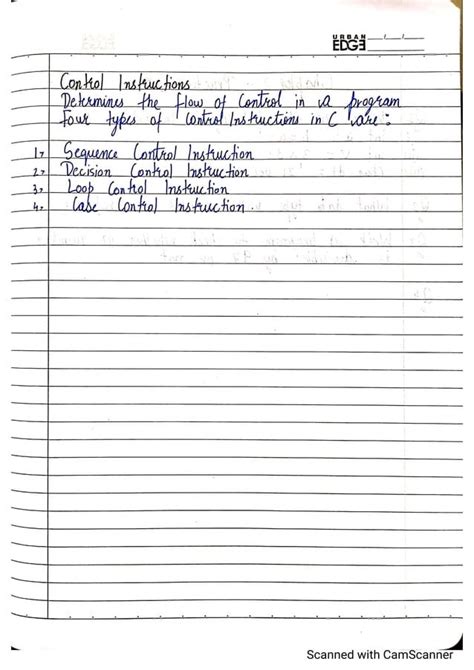 URBAN
EDGE
Control Instructions
Determines the flow of Control in a program
Four types of Control Instructions in C are:
1. Sequence Control Instruction
2. Decision Control Instruction
3. Loop Control Instruction
4. Case Control Instruction.
Scanned with CamScanner